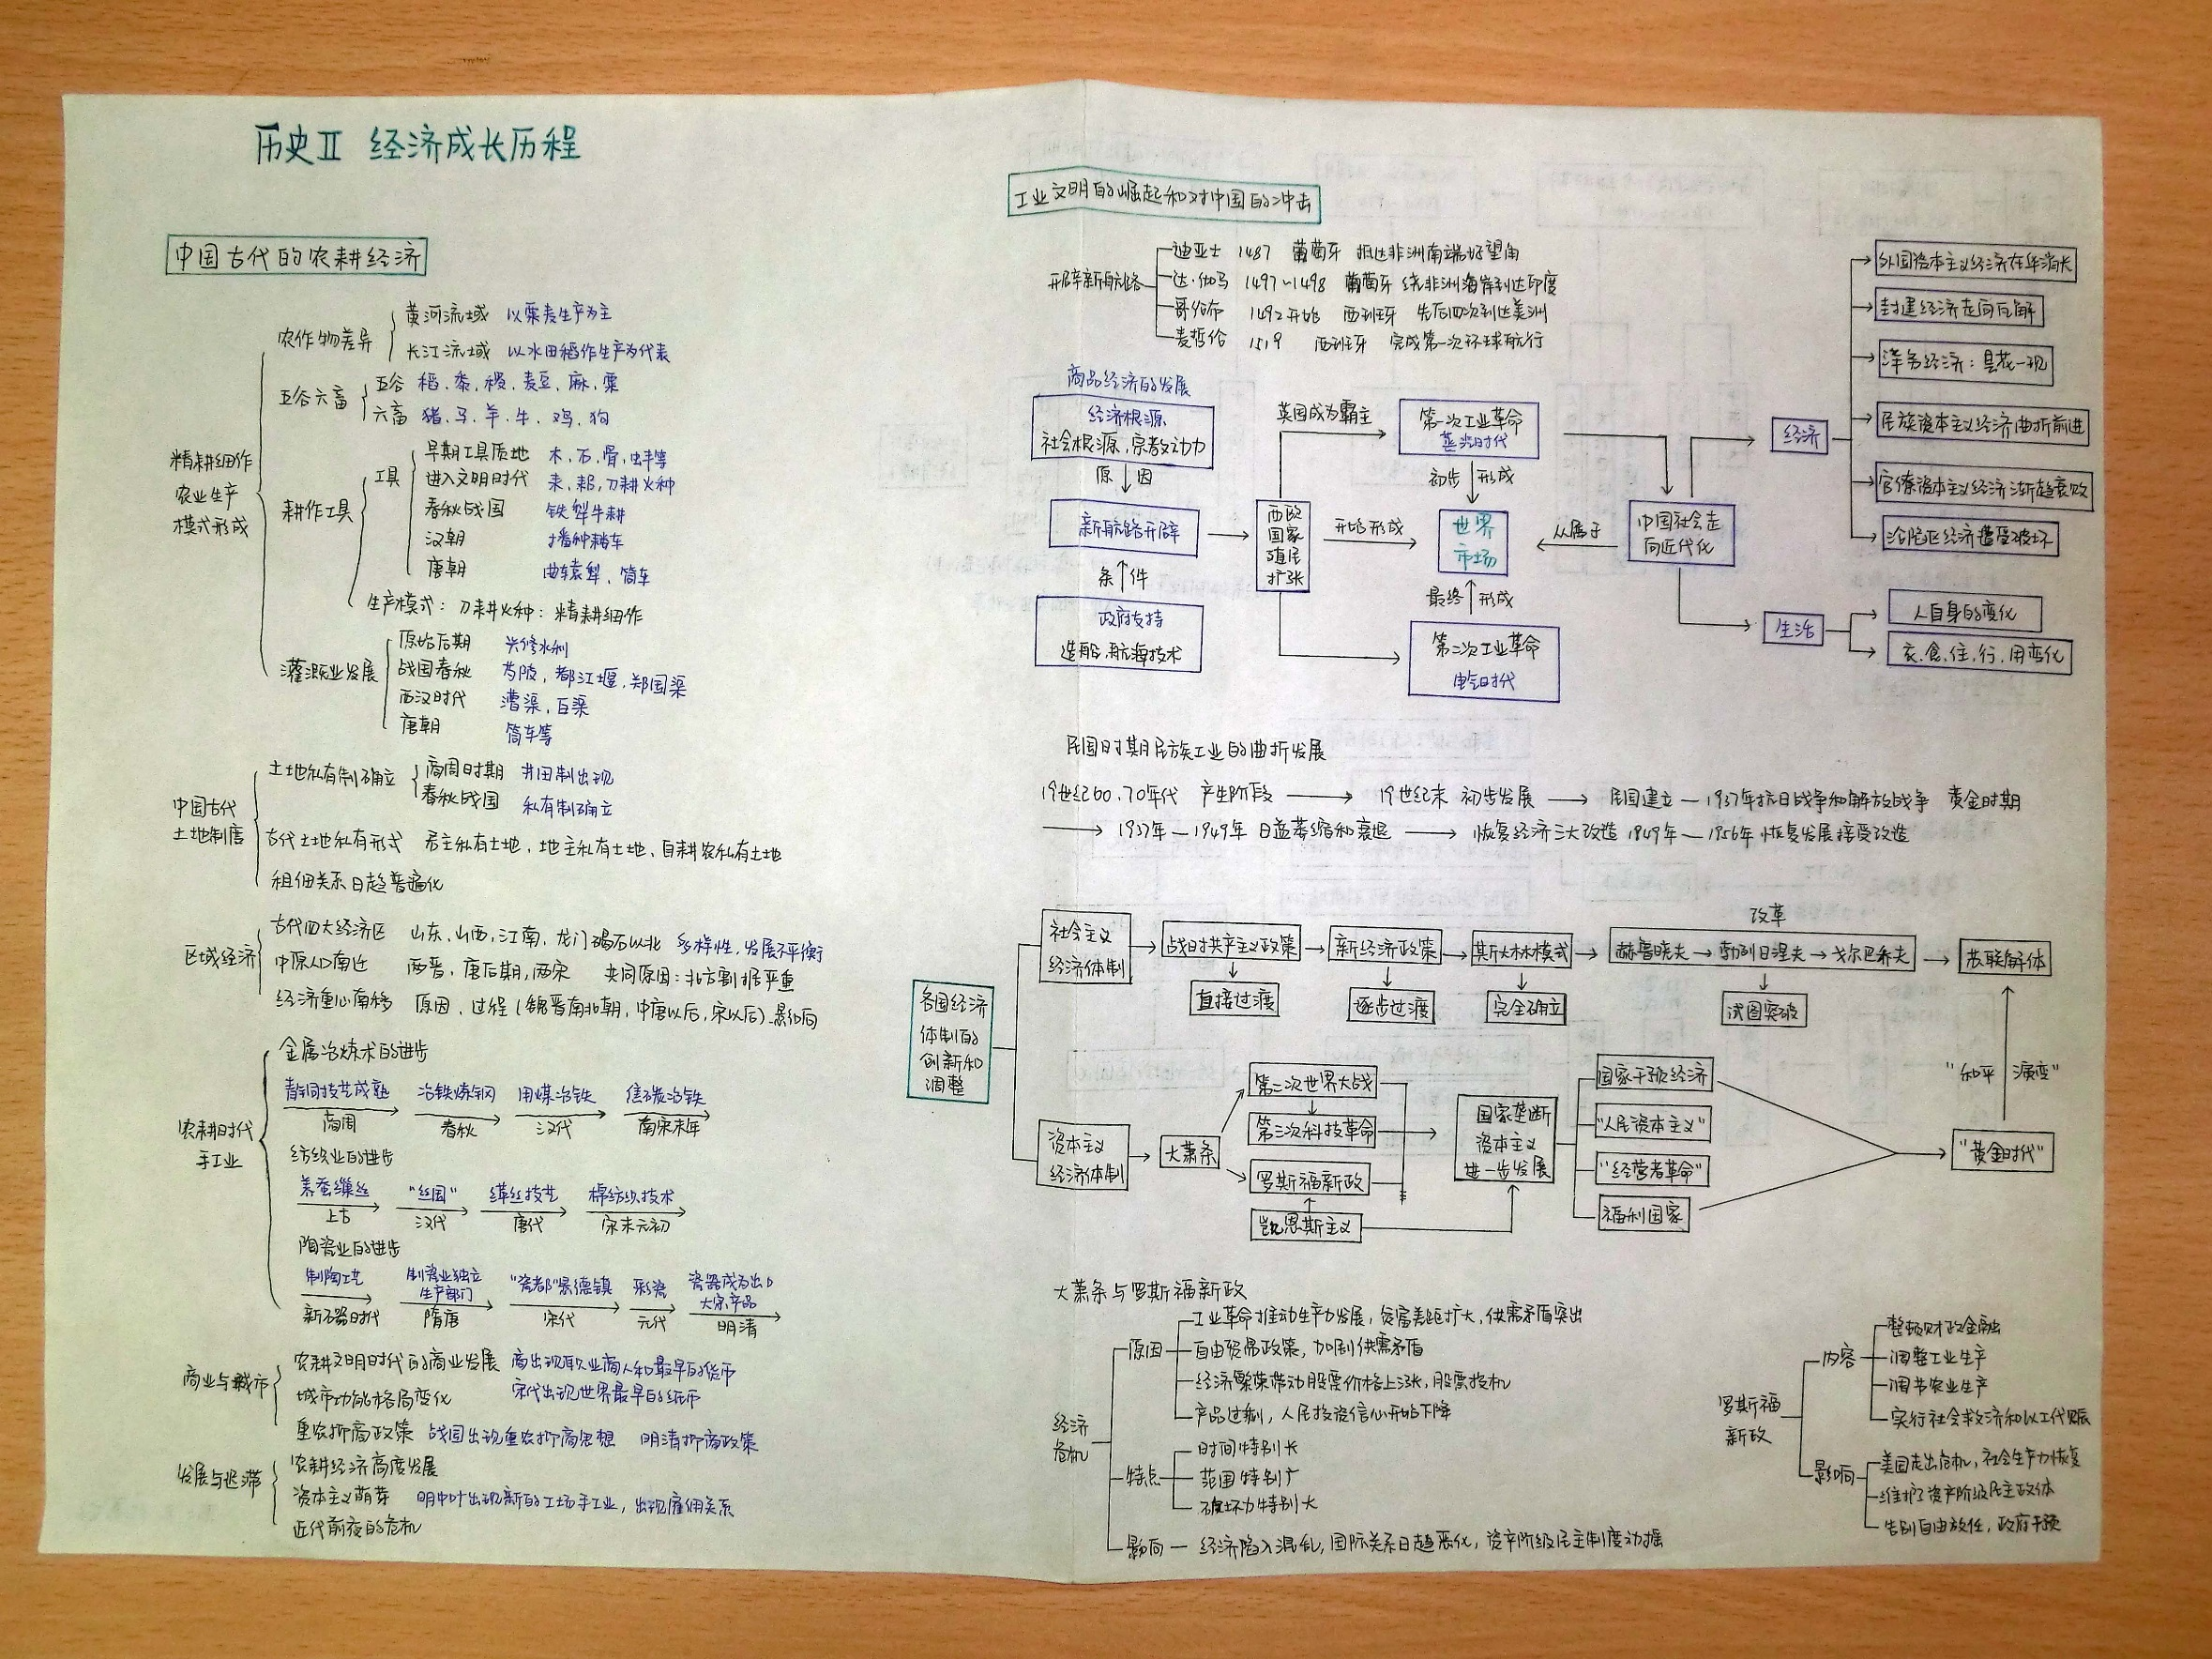 历史Ⅱ 经济成长历程
中国古代的农耕经济
精耕细作
农业生产
模式形成
农作物差异
黄河流域 以粟麦生产为主
长江流域 以水田稻作生产为代表
五谷六畜
五谷 稻、黍、稷、麦豆、麻、粟
六畜 猪、马、羊、牛、鸡、狗
耕作工具
工具
早期工具质地 木、石、骨、蚌等
进入文明时代 耒、耜、刀耕火种
春秋战国 铁犁牛耕
汉朝 播种耧车
唐朝 曲辕犁、筒车
生产模式:刀耕火种:精耕细作
灌溉业发展
原始后期 兴修水利
战国春秋 芍陂,都江堰,郑国渠
西汉时代 漕渠,白渠
唐朝 筒车等
中国古代
土地制度
土地私有制确立
商周时期 井田制出现
春秋战国 私有制确立
古代土地私有形式 君主私有土地,地主私有土地、自耕农私有土地
租佃关系日趋普遍化
区域经济
古代四大经济区 山东、山西,江南,龙门碣石以北 多样性,发展不平衡
中原人口南迁 西晋,唐后期,两宋 共同原因:北方割据严重
经济重心南移 原因,过程(魏晋南北朝,中唐以后,宋以后)、影响
农耕时代
手工业
金属冶炼术的进步
青铜技艺成熟 冶铁炼钢 用煤冶铁 焦碳冶铁
商周 春秋 汉代 南宋末年
纺织业的进步
养蚕缫丝 "丝国" 缂丝技艺 棉纺织技术
上古 汉代 唐代 宋末元初
陶瓷业的进步
制陶工艺 制瓷业独立生产部门 "瓷都"景德镇 彩瓷 瓷器成为出口大宗产品
新石器时代 隋唐 宋代 元代 明清
商业与城市
农耕文明时代的商业发展 商出现职业商人和最早的货币
城市功能格局变化 宋代出现世界最早的纸币
重农抑商政策 战国出现重农抑商思想 明清抑商政策
发展与迟滞
农耕经济高度发展
资本主义萌芽 明中叶出现新的工场手工业,出现雇佣关系
近代前夜的危机
工业文明的崛起和对中国的冲击
开辟新航路
迪亚士 1487 葡萄牙 抵达非洲南端好望角
达·伽马 1497~1498 葡萄牙 绕非洲海岸到达印度
哥伦布 1492开始 西班牙 先后四次到达美洲
麦哲伦 1519 西班牙 完成第一次环球航行
商品经济的发展
经济根源
社会根源、宗教动力
原因
新航路开辟
条件
政府支持
造船、航海技术
西欧国家殖民扩张
英国成为霸主
第一次工业革命
蒸汽时代
初步形成
开始形成
世界
市场
最终形成
第二次工业革命
电气时代
从属于
中国社会走
向近代化
经济
外国资本主义经济在华消长
封建经济走向瓦解
洋务经济:昙花一现
民族资本主义经济曲折前进
官僚资本主义经济渐趋衰败
沦陷区经济遭受破坏
生活
人自身的变化
衣、食、住、行、用变化
民国时期民族工业的曲折发展
19世纪60、70年代 产生阶段 → 19世纪末 初步发展 → 民国建立—1937年抗日战争和解放战争 黄金时期
→ 1937年—1949年 日益萎缩和衰退 → 恢复经济三大改造 1949年—1956年 恢复发展接受改造
各国经济
体制的
创新和
调整
社会主义
经济体制
战时共产主义政策 → 新经济政策 → 斯大林模式 → 赫鲁晓夫 → 勃列日涅夫 → 戈尔巴乔夫 → 苏联解体
改革
直接过渡 逐步过渡 完全确立 试图突破
资本主义
经济体制
大萧条
第二次世界大战
第三次科技革命
罗斯福新政
凯恩斯主义
国家垄断
资本主义
进一步发展
国家干预经济
"人民资本主义"
"经营者革命"
福利国家
"黄金时代"
"和平演变"
大萧条与罗斯福新政
经济
危机
原因
工业革命推动生产力发展,贫富差距扩大,供需矛盾突出
自由贸易政策,加剧供需矛盾
经济繁荣带动股票价格上涨,股票投机
产品过剩,人民投资信心开始下降
特点
时间特别长
范围特别广
破坏力特别大
影响 — 经济陷入混乱,国际关系日趋恶化,资产阶级民主制度动摇
罗斯福
新政
内容
整顿财政金融
调整工业生产
调节农业生产
实行社会救济和以工代赈
影响
美国走出危机,社会生产力恢复
维护了资产阶级民主政体
告别自由放任,政府干预